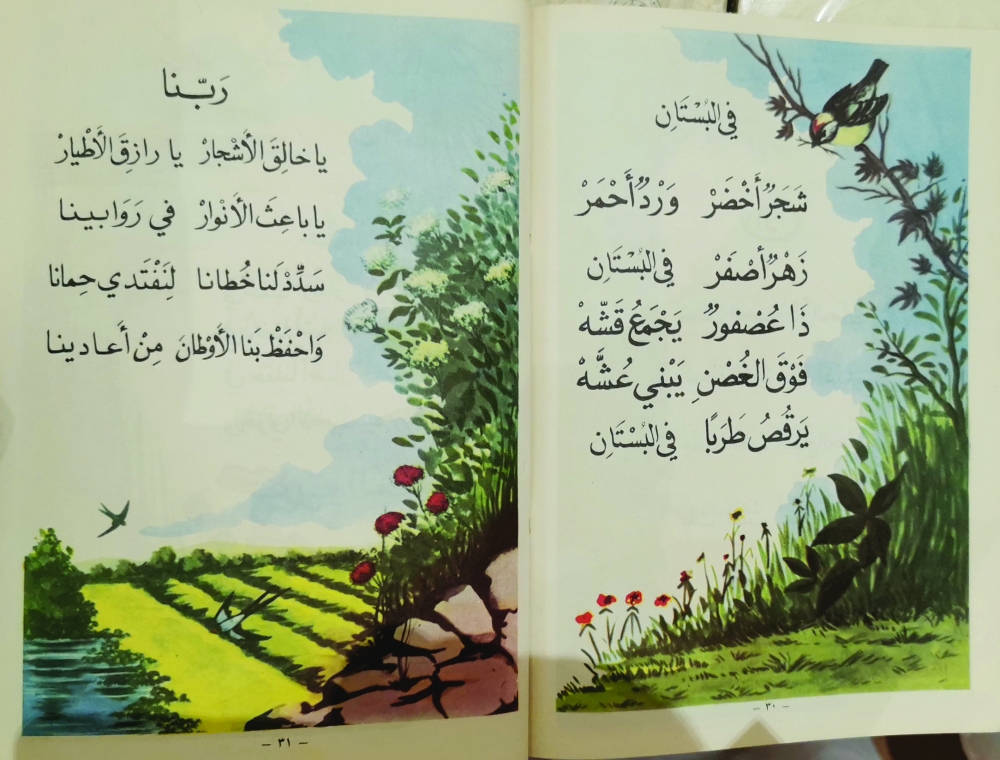 في البُسْتَانِ
شَجَرٌ أَخْضَرْ وَرْدٌ أَحْمَرْ
زَهْرٌ أَصْفَرْ في البُسْتَانِ
ذَا عُصْفورٌ يَجْمَعُ قَشَّهْ
فَوْقَ الغُصْنِ يَبْني عُشَّهْ
يَرْقُصُ طَرَبًا في البُسْتَانِ
– ٣٠ –
رَبّنا
يا خالِقَ الأَشْجارْ يا رازِقَ الأَطْيارْ
يا باعِثَ الأَنْوارْ في رَوَابينا
سَدِّدْ لَنا خُطانا لِنَفْتَدي حِمانا
وَاحْفَظْ بَنا الأَوْطانَ مِنْ أَعادينا
– ٣١ –